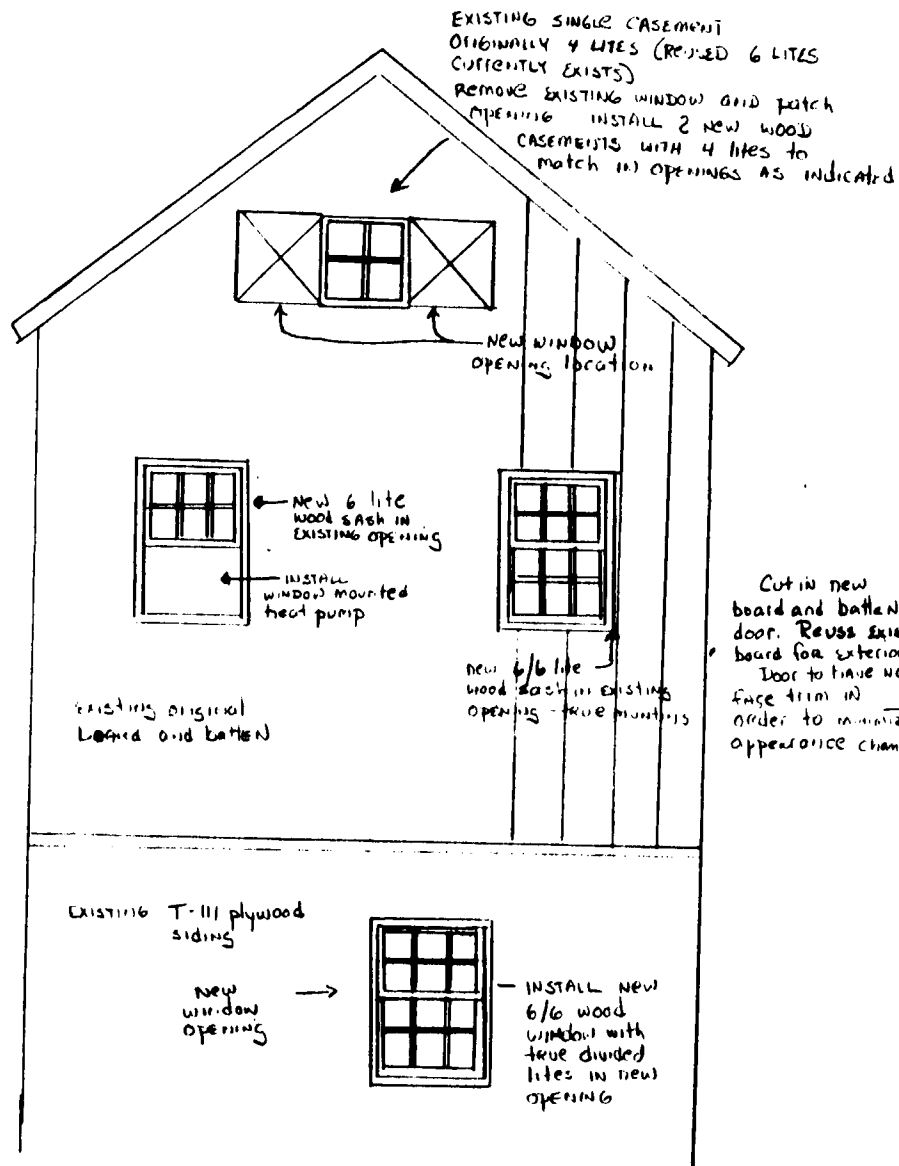 EXISTING SINGLE CASEMENT
ORIGINALLY 4 LITES (REUSED 6 LITES
CURRENTLY EXISTS)
REMOVE EXISTING WINDOW and patch
OPENING INSTALL 2 NEW WOOD
CASEMENTS WITH 4 lites to
match IN OPENINGS AS INDICATED
NEW WINDOW
OPENING location
NEW 6 lite
WOOD SASH IN
EXISTING OPENING
INSTALL
WINDOW mounted
heat pump
Cut in new
board and batten
door. Reuse Exis
board for exterio
Door to have no
face trim IN
order to minimiz
appearance chan
new 6/6 lite
wood sash in existing
OPENING - true muntins
Existing original
Board and batten
EXISTING T-111 plywood
SIDING
New
window
OPENING
INSTALL NEW
6/6 wood
window with
true divided
lites IN new
OPENING